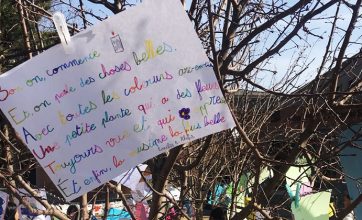 Bon on commence
Et, on parle des choses belles.
Avec toutes les couleurs arc-en-ciel
Une petite plante qui a des fleurs
Toujours vous et qui
Et enfin, la musique la plus belle